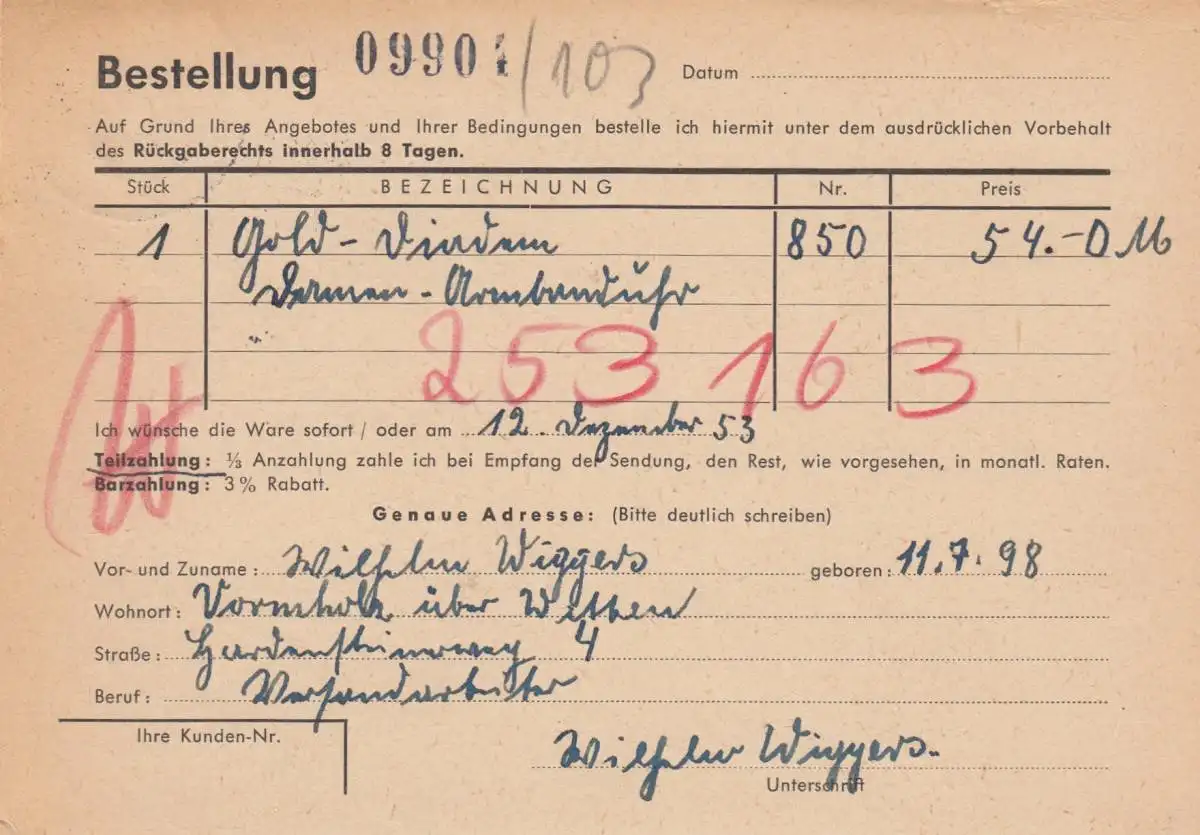 Bestellung 09904/103 Datum
Auf Grund Ihres Angebotes und Ihrer Bedingungen bestelle ich hiermit unter dem ausdrücklichen Vorbehalt
des Rückgaberechts innerhalb 8 Tagen.
Stück BEZEICHNUNG Nr. Preis
1 Gold-Diadem 850 54.-D M
Damen-Armbanduhr
253163
Ich wünsche die Ware sofort / oder am 12. Dezember 53
Teilzahlung: ⅓ Anzahlung zahle ich bei Empfang der Sendung, den Rest, wie vorgesehen, in monatl. Raten.
Barzahlung: 3% Rabatt.
Genaue Adresse: (Bitte deutlich schreiben)
Vor- und Zuname: Wilhelm Wiggers geboren: 11.7.98
Wohnort: Vormholz über Witten
Straße: Hardensteinerweg 4
Beruf: Versandarbeiter
Ihre Kunden-Nr.
Wilhelm Wiggers.
Unterschrift